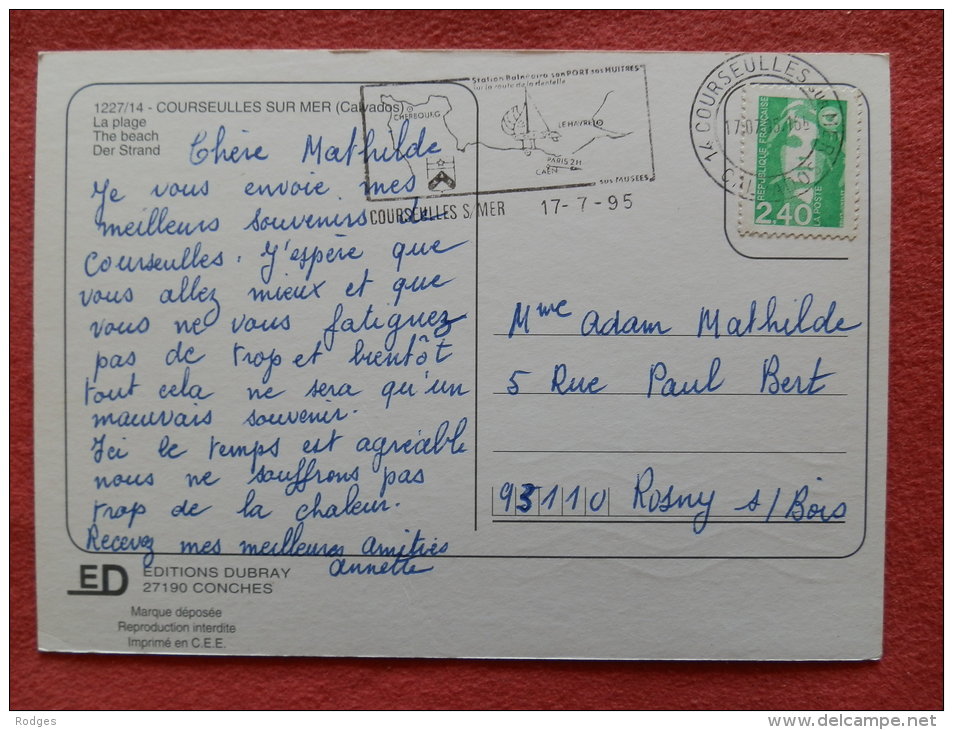 1227/14 - COURSEULLES SUR MER (Calvados)
La plage
The beach
Der Strand
Chère Mathilde
Je vous envoie mes
meilleurs souvenirs de
Courseulles. J'espère que
vous allez mieux et que
vous ne vous fatiguez
pas de trop et bientôt
tout cela ne sera qu'un
mauvais souvenir.
Ici le temps est agréable
nous ne souffrons pas
trop de la chaleur.
Recevez mes meilleures amitiés
Annette
ED
EDITIONS DUBRAY
27190 CONCHES
Marque déposée
Reproduction interdite
Imprimé en C.E.E.
Station Balnéaire son PORT ses HUITRES
sur la route de la dentelle
CHERBOURG
LE HAVRE
PARIS 2H
CAEN
ses MUSEES
COURSEULLES S/MER 17-7-95
14 COURSEULLES sur MER
REPUBLIQUE FRANÇAISE
2,40
LA POSTE
Mme Adam Mathilde
5 Rue Paul Bert
93110 Rosny s/Bois
Rodges
delcampe.net